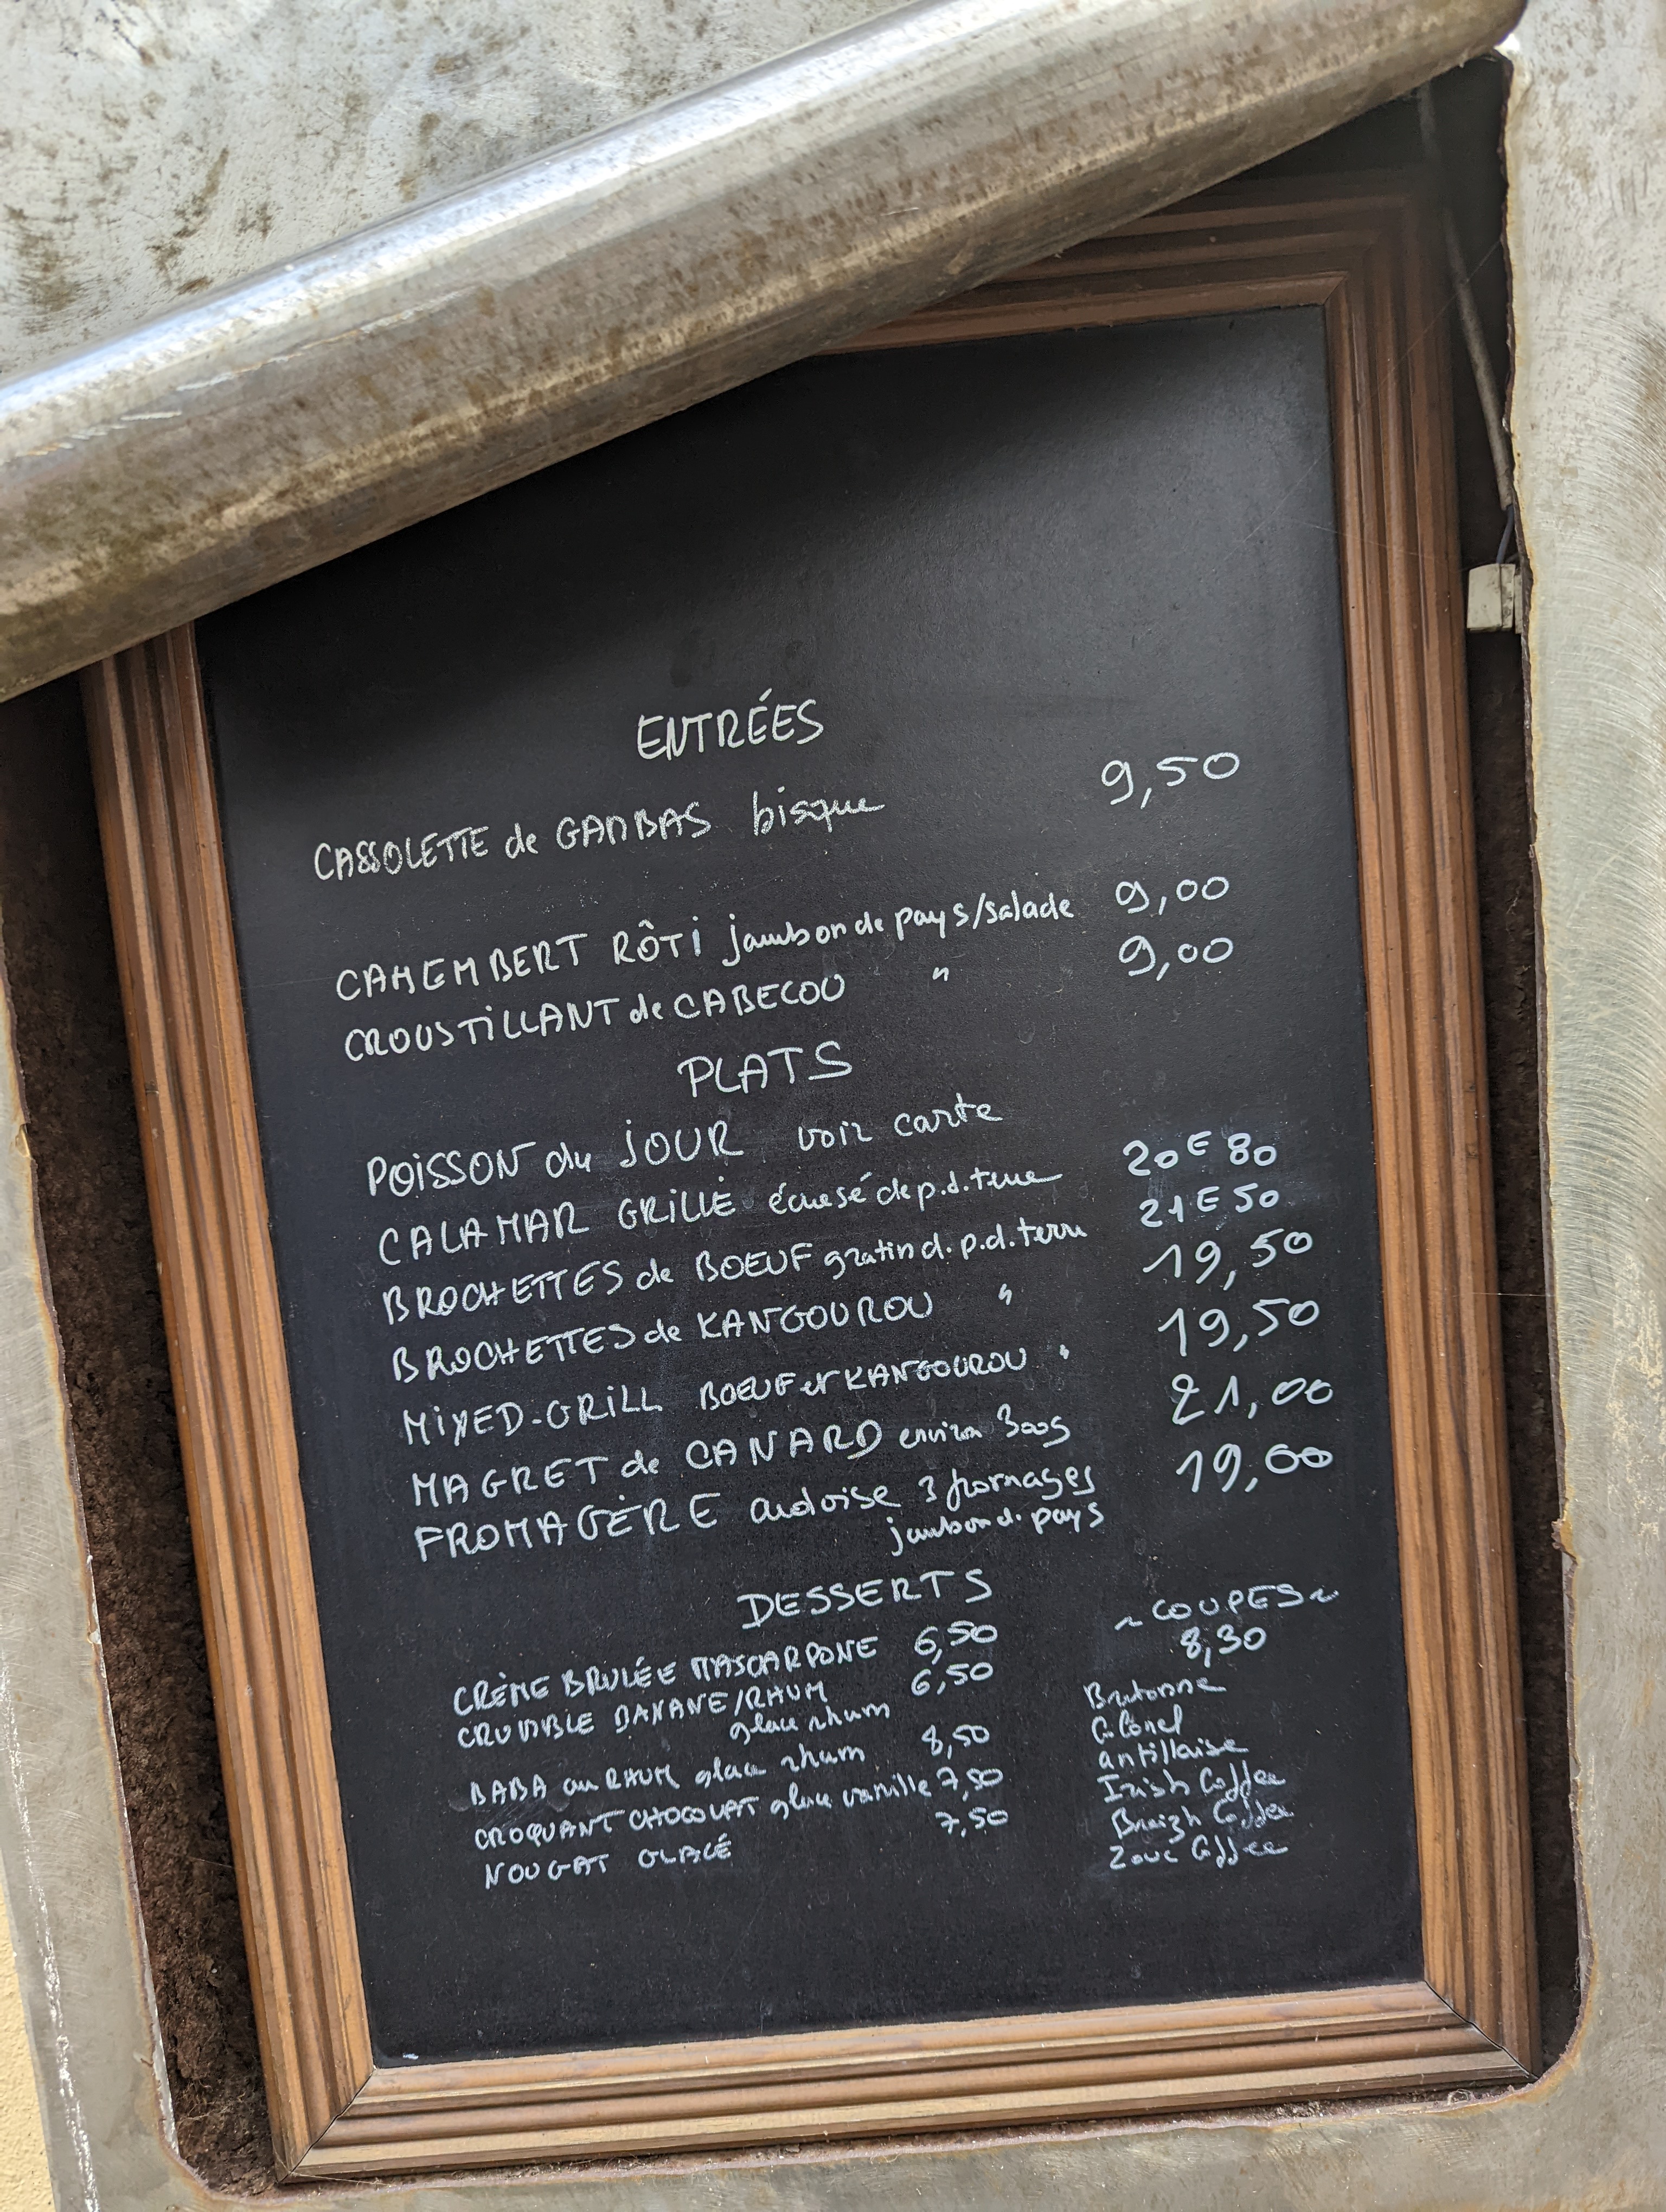 ENTRÉES
CASSOLETTE de GAMBAS bisque 9,50
CAMEMBERT RÔTI jambon de pays/salade 9,00
CROUSTILLANT de CABECOU " 9,00
PLATS
POISSON du JOUR voir carte
CALAMAR GRILLÉ écrasé de p.d.terre 20€80
BROCHETTES de BOEUF gratin d. p.d.terre 21€50
BROCHETTES de KANGOUROU " 19,50
MIXED-GRILL BOEUF et KANGOUROU " 19,50
MAGRET de CANARD environ 300g 21,00
FROMAGÈRE ardoise 3 fromages 19,00
jambon d. pays
DESSERTS
CRÈME BRULÉE MASCARPONE 6,50
CRUMBLE BANANE/RHUM 6,50
glace rhum
BABA au RHUM glace rhum 8,50
CROQUANT CHOCOLAT glace vanille 7,50
NOUGAT GLACÉ 7,50
~COUPES~
8,30
Bretonne
Colonel
antillaise
Irish Coffee
Breizh Coffee
Zouc Coffee